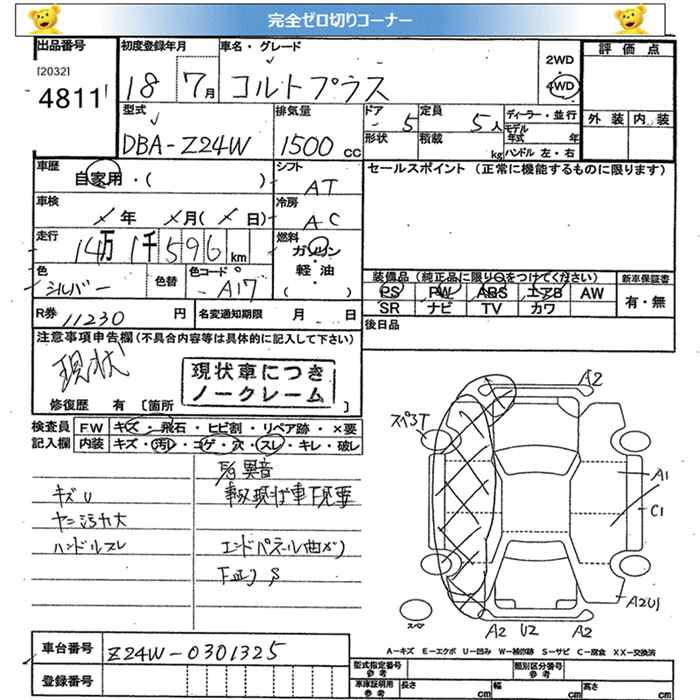 完全ゼロ切りコーナー
出品番号
[2032]
4811
初度登録年月
18 7月
車名・グレード
コルトプラス
2WD
4WD
評価点
外装 内装
型式
DBA-Z24W
排気量
1500cc
ドア 5
形状
定員 5人
積載 kg
ディーラー・並行
モデル年式 年
ハンドル 左・右
車歴
自家用・( )
シフト
AT
セールスポイント (正常に機能するものに限ります)
車検
×年 ×月(×日)
冷房
AC
走行
14万1千596km
燃料
ガソリン
軽油
( )
色
シルバー
色替
色コード
A17
装備品(純正品に限り○をつけてください)
新車保証書
PS PW ABS エアB AW
有・無
SR ナビ TV カワ
R券 11230円
名変通知期限 月 日
後日品
注意事項申告欄(不具合内容等は具体的に記入して下さい)
現状
現状車につき
ノークレーム
修復歴 有 [箇所
検査員
記入欄
FW キズ・飛石・ヒビ割・リペア跡・×要
内装 キズ・汚レ・コゲ・穴・スレ・キレ・破レ
異音
キズU
ヤニ汚れ大
ハンドルスレ
エンドパネル曲がり
下廻りS
A2
スペ3T
A1
C1
A2U1
スペア
A2 U2 A2
A-キズ E-エクボ U-凹み W-補修跡 S-サビ C-腐食 XX-交換済
車台番号
Z24W-0301325
登録番号
型式指定番号
参考
類別区分番号
参考
車庫証明用
参考
長さ cm
幅 cm
高さ cm